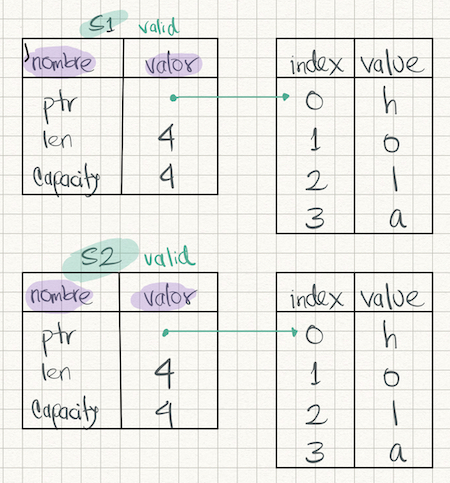 S1 valid
nombre valor
ptr
len 4
Capacity 4
index value
0 h
1 o
2 l
3 a
S2 valid
nombre valor
ptr
len 4
Capacity 4
index value
0 h
1 o
2 l
3 a